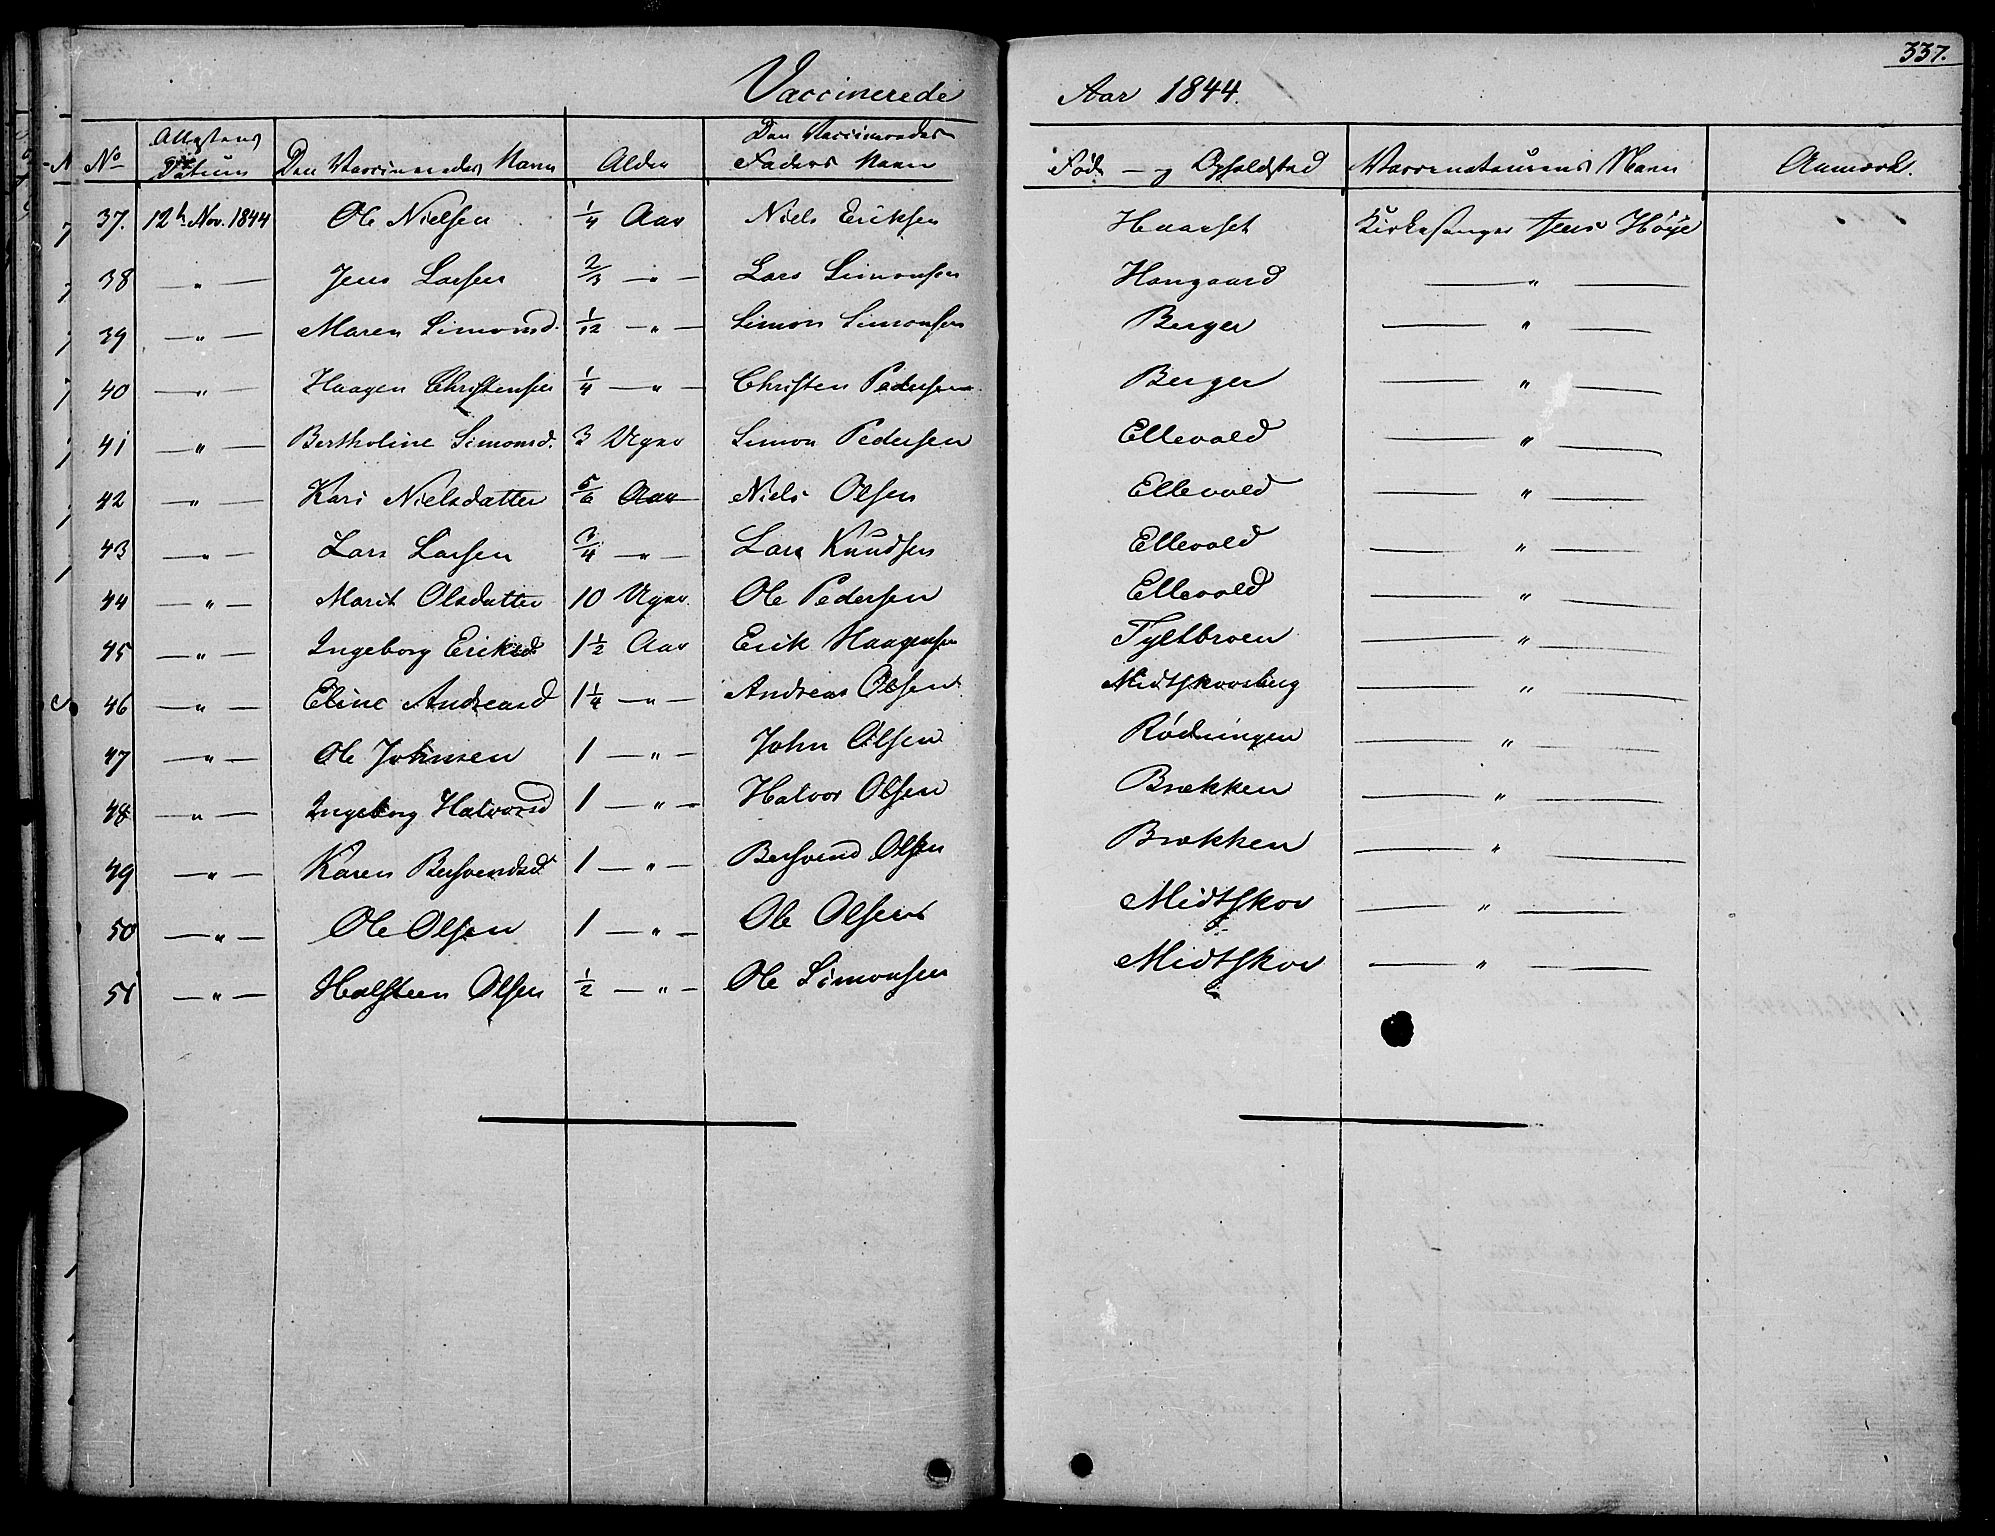 337.
Vaccinerede Aar 1844.
No Attestens Datum Den Vaccineredes Navn Alder Den Vaccineredes Faders Navn Føde- og Opholdsted Vaccinateurens Navn Anmærk.
37. 12te Nov. 1844 Ole Nielsen 1/4 Aar Niels Eriksen Haarset Kirkesanger Jens Höye
38 — " — Jens Larsen 2/3 — " — Lars Simonsen Haugaard — " —
39 — " — Maren Simonsd. 1/12 — " — Simon Simonsen Berger — " —
40 — " — Haagen Christensen 1/4 — " — Christen Pedersen Berger — " —
41 — " — Bertholine Simonsd. 3 Uger Simon Pedersen Ellevold — " —
42 — " — Kari Nielsdatter 5/6 Aar Niels Olsen Ellevold — " —
43 — " — Lars Larsen 3/4 — " — Lars Knudsen Ellevold — " —
44 — " — Marit Olsdatter 10 Uger. Ole Pedersen Ellevold — " —
45 — " — Ingeborg Eriksd. 1 1/2 Aar Erik Haagensen Tyltbroen — " —
46 — " — Eline Andreasd 1 1/4 — " — Andreas Olsen Midtskovsberg — " —
47 — " — Ole Johnsen 1 — " — John Olsen Rødningen — " —
48 — " — Ingeborg Halvorsd 1 — " — Halvor Olsen Brækken — " —
49 — " — Karen Bersvendsd. 1 — " — Bersvend Olsen Brækken — " —
50 — " — Ole Olsen 1 — " — Ole Olsen Midtskov — " —
51 — " — Halsteen Olsen 1/2 — " — Ole Simonsen Midtskov — " —